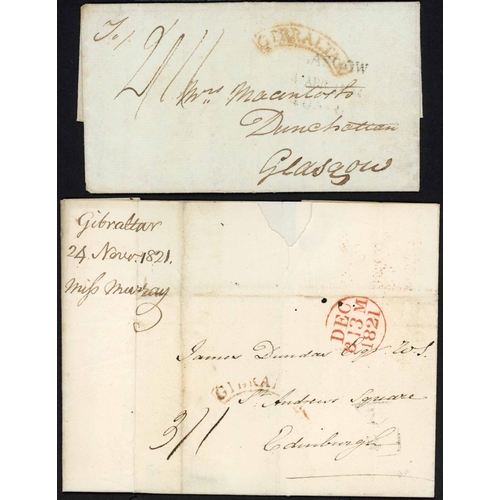 To/.
2/11
GIBRALTAR
Mrs Macintosh
Dunchattan
Glasgow
Gibraltar
24 Novr. 1821.
Miss Murray
DEC
13 M
1821
James Dundas Esqr W.S.
GIBRAL
St Andrews Square
3/1
Edinburgh